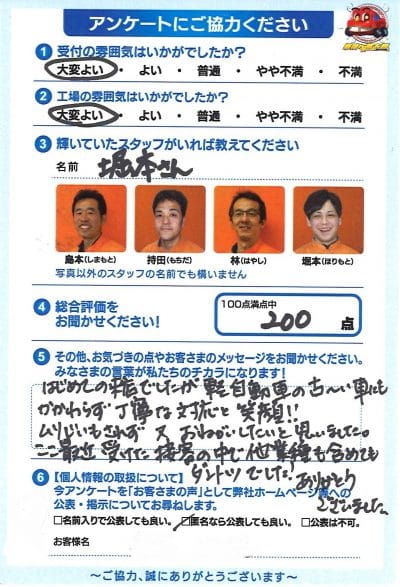 アンケートにご協力ください
1 受付の雰囲気はいかがでしたか?
大変よい ・ よい ・ 普通 ・ やや不満 ・ 不満
2 工場の雰囲気はいかがでしたか?
大変よい ・ よい ・ 普通 ・ やや不満 ・ 不満
3 輝いていたスタッフがいれば教えてください
名前 堀本さん
島本(しまもと) 持田(もちだ) 林(はやし) 堀本(ほりもと)
写真以外のスタッフの名前でも構いません
4 総合評価を
お聞かせください!
100点満点中
200 点
5 その他、お気づきの点やお客さまのメッセージをお聞かせください。
みなさまの言葉が私たちのチカラになります!
はじめての来店でしたが軽自動車の古〜い車にも
かかわらず丁寧な対応と笑顔!!
ムリじいもされず 又おねがいしたいと思いました。
ここ最近受けた接客の中で他業種も含めても
ダントツでした! ありがとう
ございました。
6 【個人情報の取扱について】
今アンケートを「お客さまの声」として弊社ホームページ等への
公表・掲示についてお尋ねします。
□名前入りで公表しても良い。 ☑匿名なら公表しても良い。 □公表は不可。
お客様名
〜ご協力、誠にありがとうございます〜